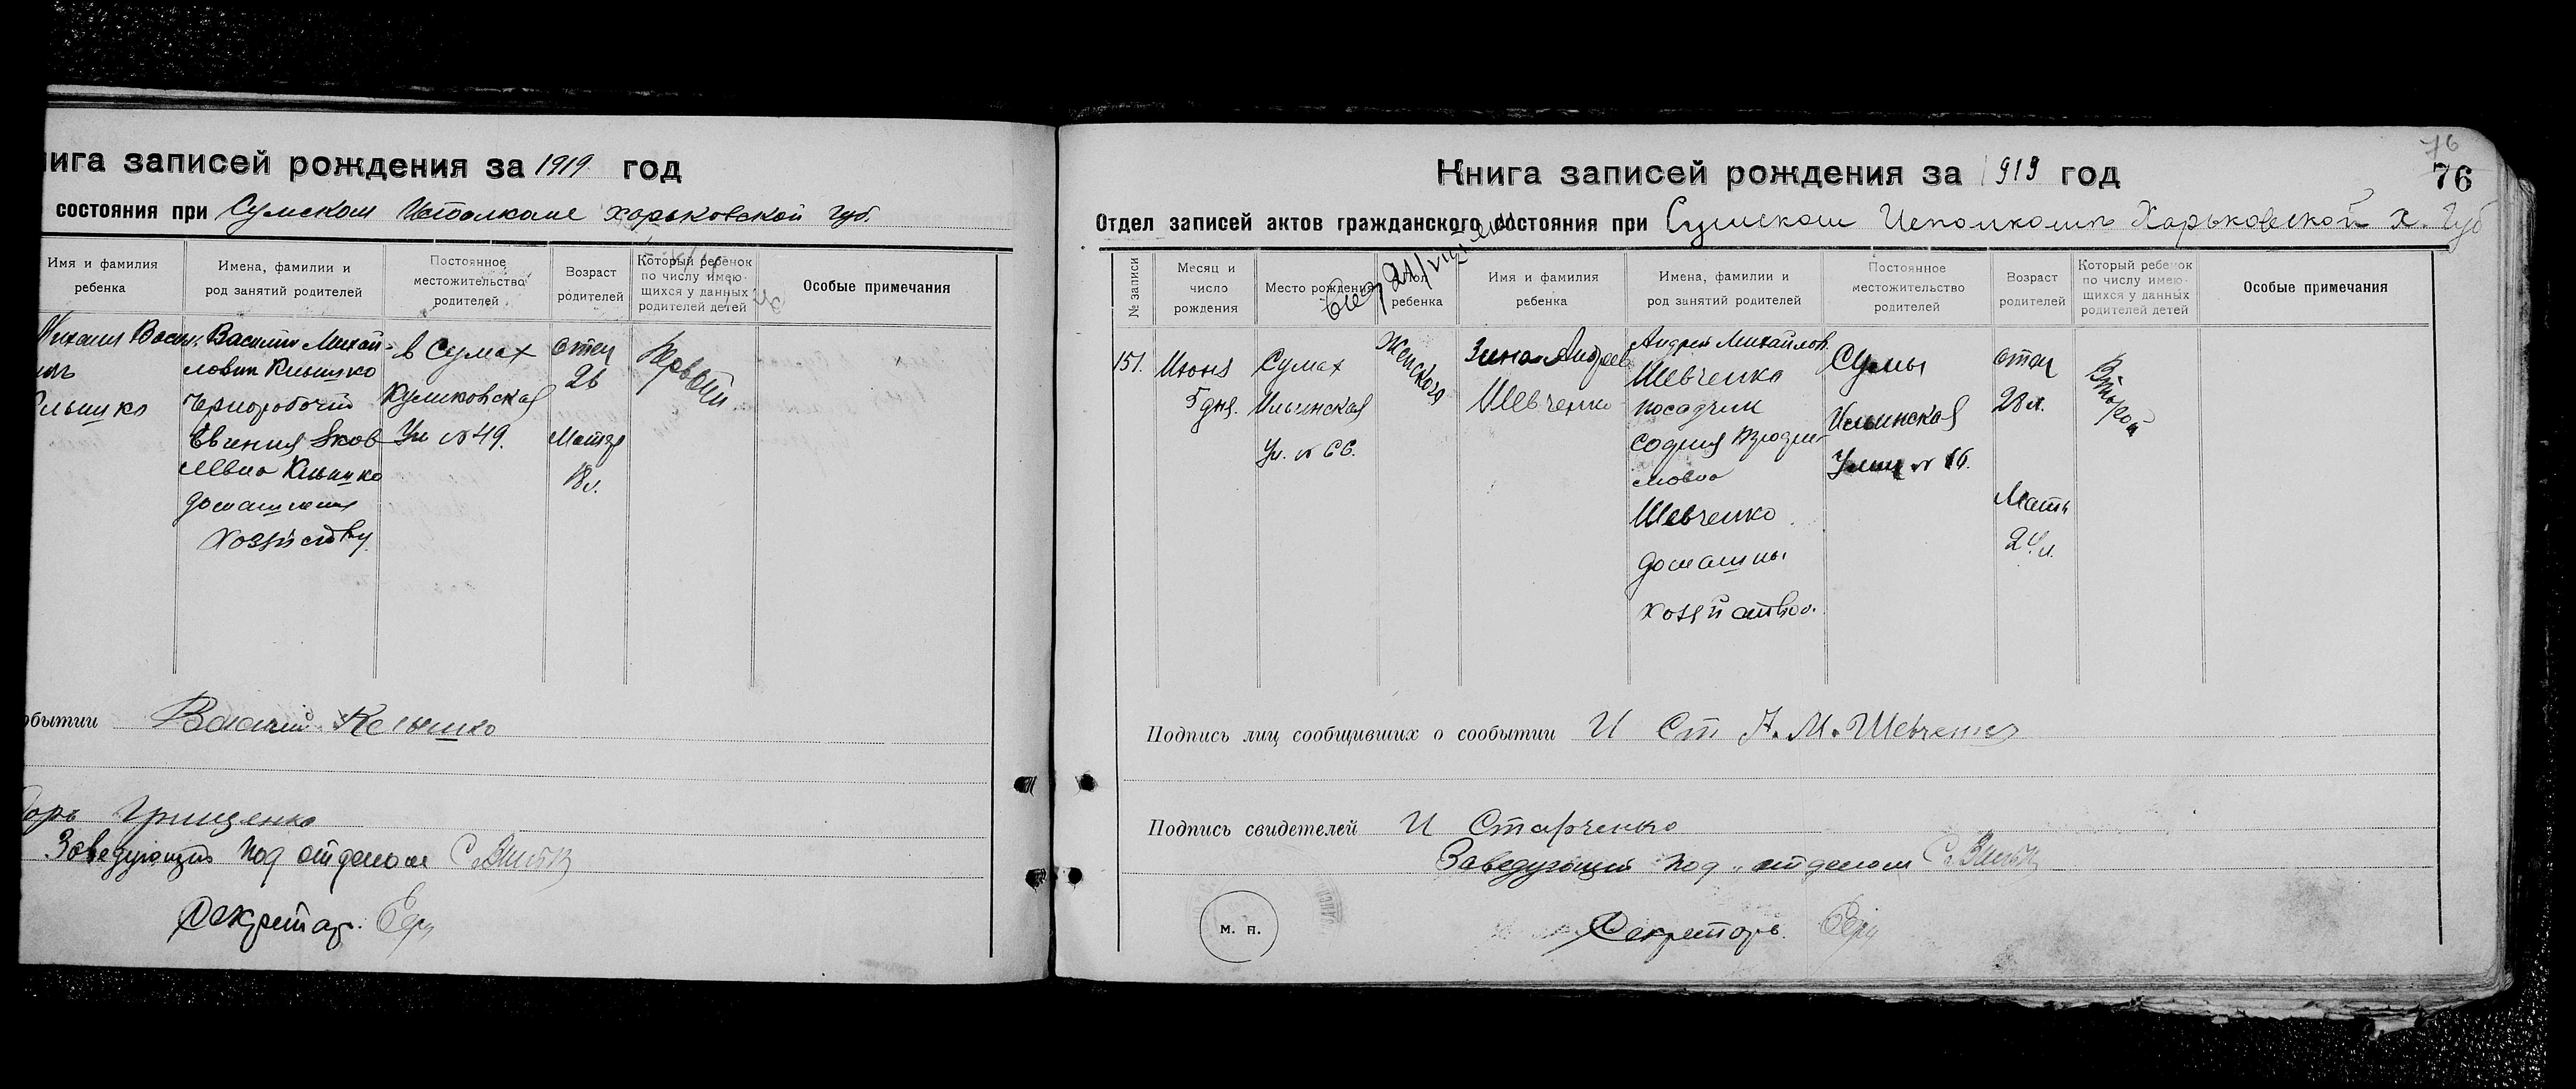 нига записей рождения за 1919 год
состояния при Сумском Исполкоме Харьковской губ.
Имя и фамилия ребенка
Имена, фамилии и род занятий родителей
Постоянное местожительство родителей
Возраст родителей
Который ребенок по числу имеющихся у данных родителей детей
Особые примечания
Михаил Васил.
Василий Михай-
лович
Чернорабочий
Евгения Яков
левна
домашнем
хозяйству
в Сумах
Куликовская
Ул № 49.
отец
26
Матер
18 л.
Первый
обытии Василий
Грищенко
Заведующий под отделом
Секретар.
76
76
Книга записей рождения за 1919 год
Отдел записей актов гражданского состояния при Сумском Исполкоми Харьковской Х. Губ
№ записи
Месяц и число рождения
Место рождения
Пол ребенка
Имя и фамилия ребенка
Имена, фамилии и род занятий родителей
Постоянное местожительство родителей
Возраст родителей
Который ребенок по числу имеющихся у данных родителей детей
Особые примечания
151.
Июня
5 дня.
Сумах
Ильинская
Ул. № 66.
Женского
Зина Андреев
Шевченко
Андрей Михайлов.
Шевченко
посадчик
София
Шевченко
домашны
хозяйство.
Сумы
Ильинская
Улиц №
отец
28 л.
Мать
24 л.
Второй
Подпись лиц сообщивших о сообытии И Ст А. М. Шевченко
Подпись свидетелей И Старченко
Заведующий под отделом
м. п.
Секретарь.